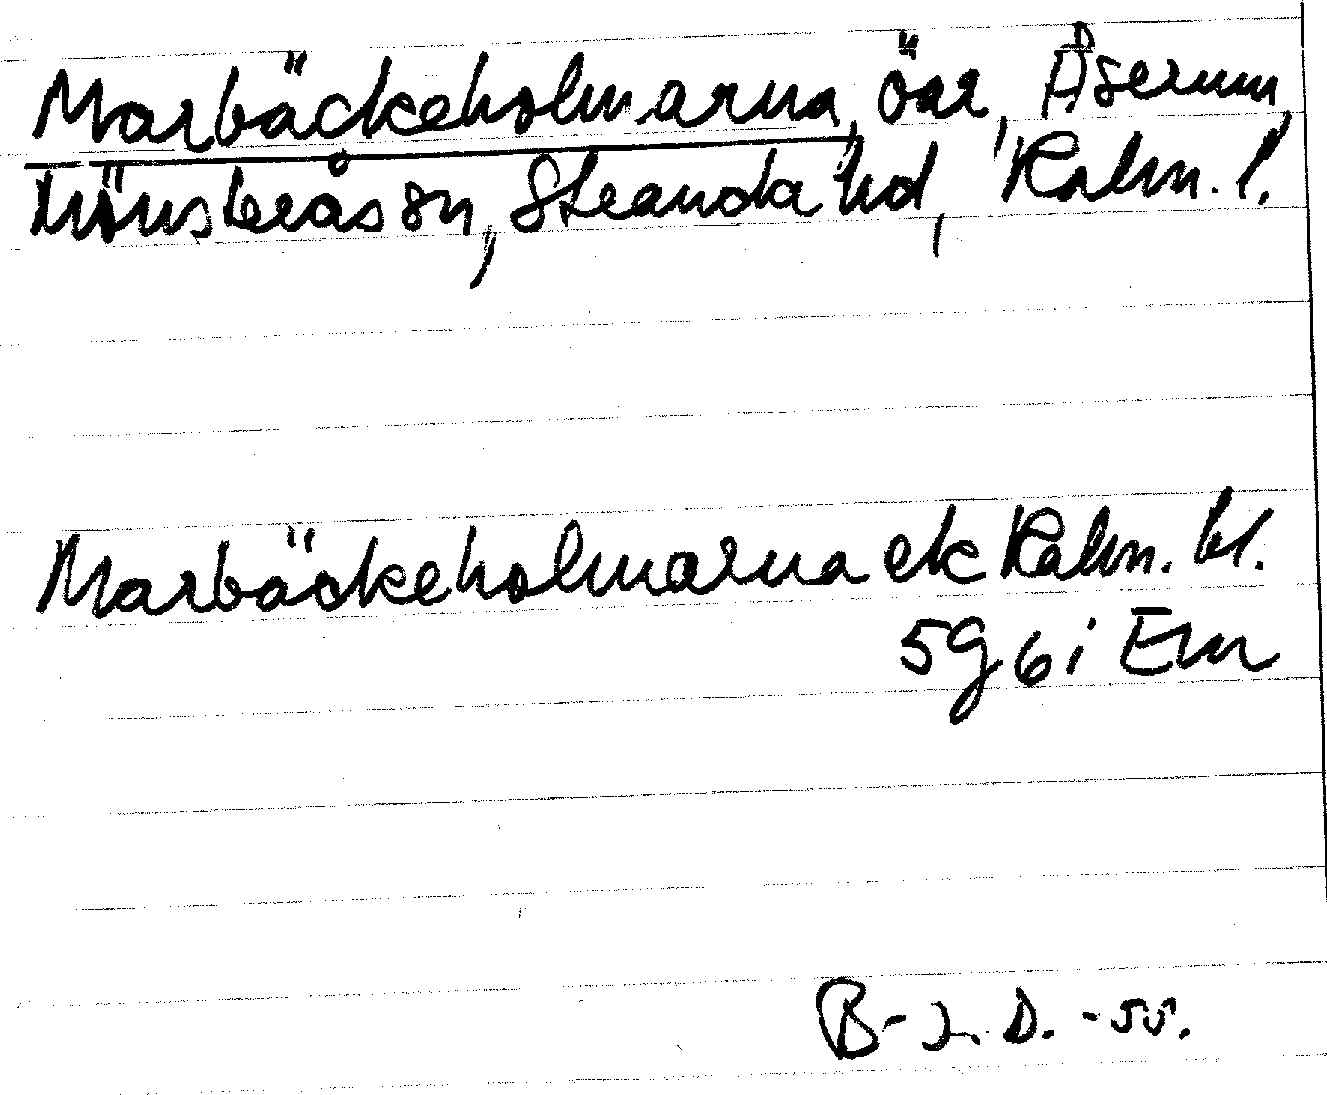 Marbäckeholmarna, öar, Åserum,
Mönsterås sn, Stranda hd, Kalm. l.
Marbäckeholmarna ek Kalm. bl.
5g 6i Em
B-J. D. -55.